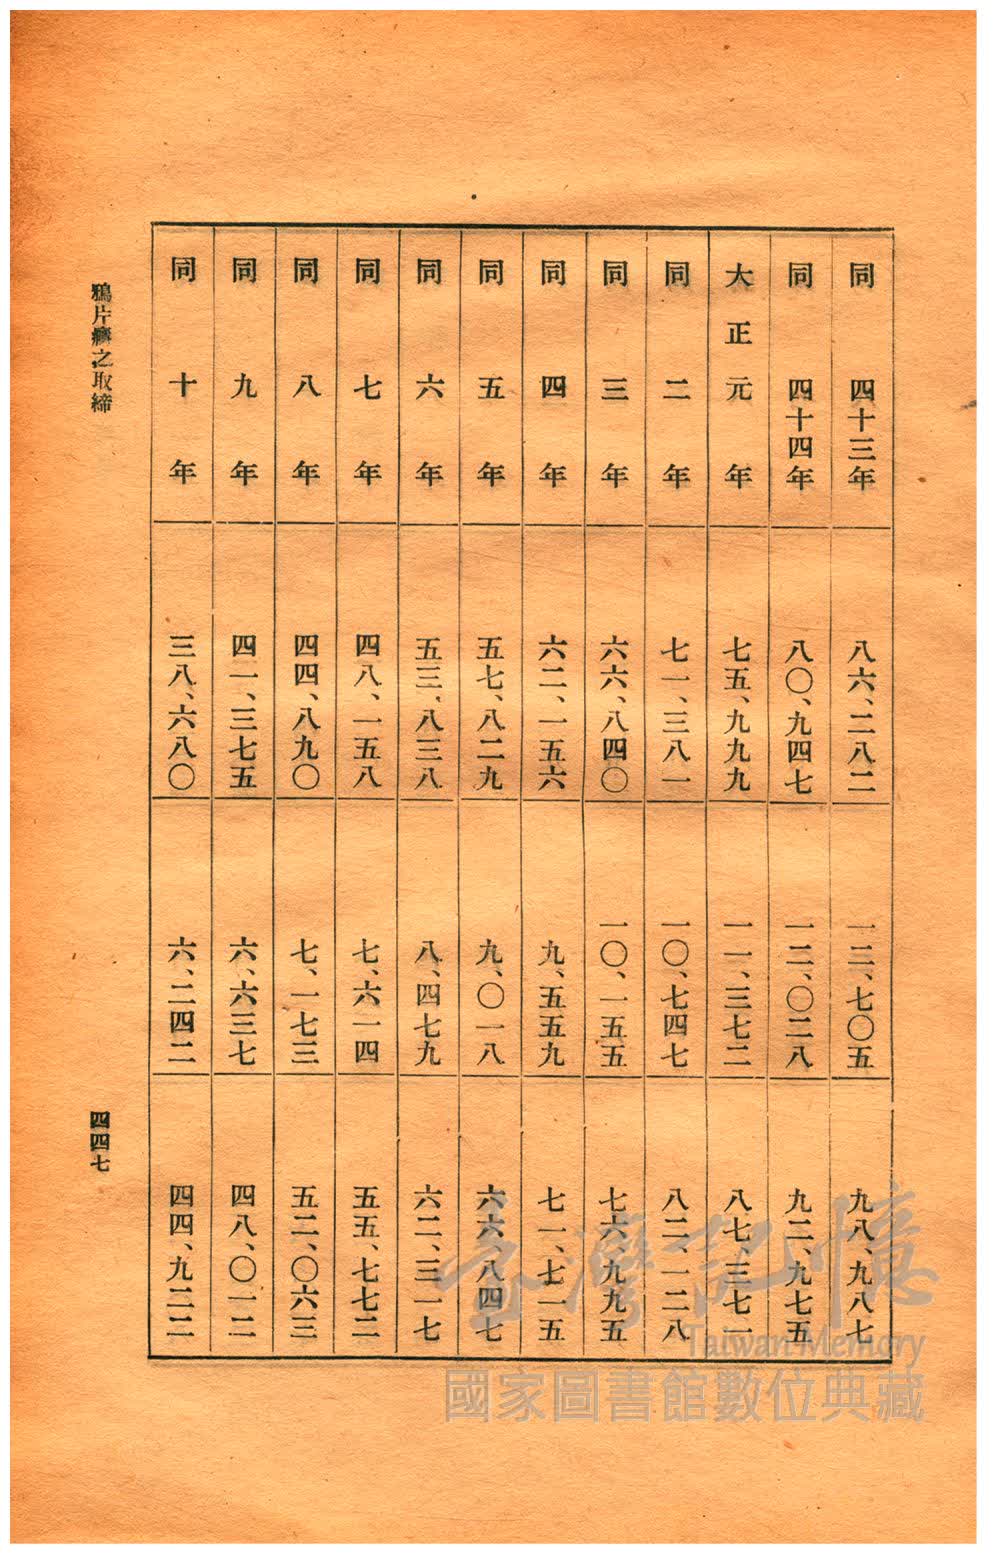 同四十三年 八六、二八二 一二、七〇五 九八、九八七
同四十四年 八〇、九四七 一二、〇二八 九二、九七五
大正元年 七五、九九九 一一、三七二 八七、三七一
同二年 七一、三八一 一〇、七四七 八二、一二八
同三年 六六、八四〇 一〇、一五五 七六、九九五
同四年 六二、一五六 九、五五九 七一、七一五
同五年 五七、八二九 九、〇一八 六六、八四七
同六年 五三、八三八 八、四七九 六二、三一七
同七年 四八、一五八 七、六一四 五五、七七二
同八年 四四、八九〇 七、一七三 五二、〇六三
同九年 四一、三七五 六、六三七 四八、〇一二
同十年 三八、六八〇 六、二四二 四四、九二二
鴉片癮之取締
四四七
臺灣記憶
Taiwan Memory
國家圖書館數位典藏